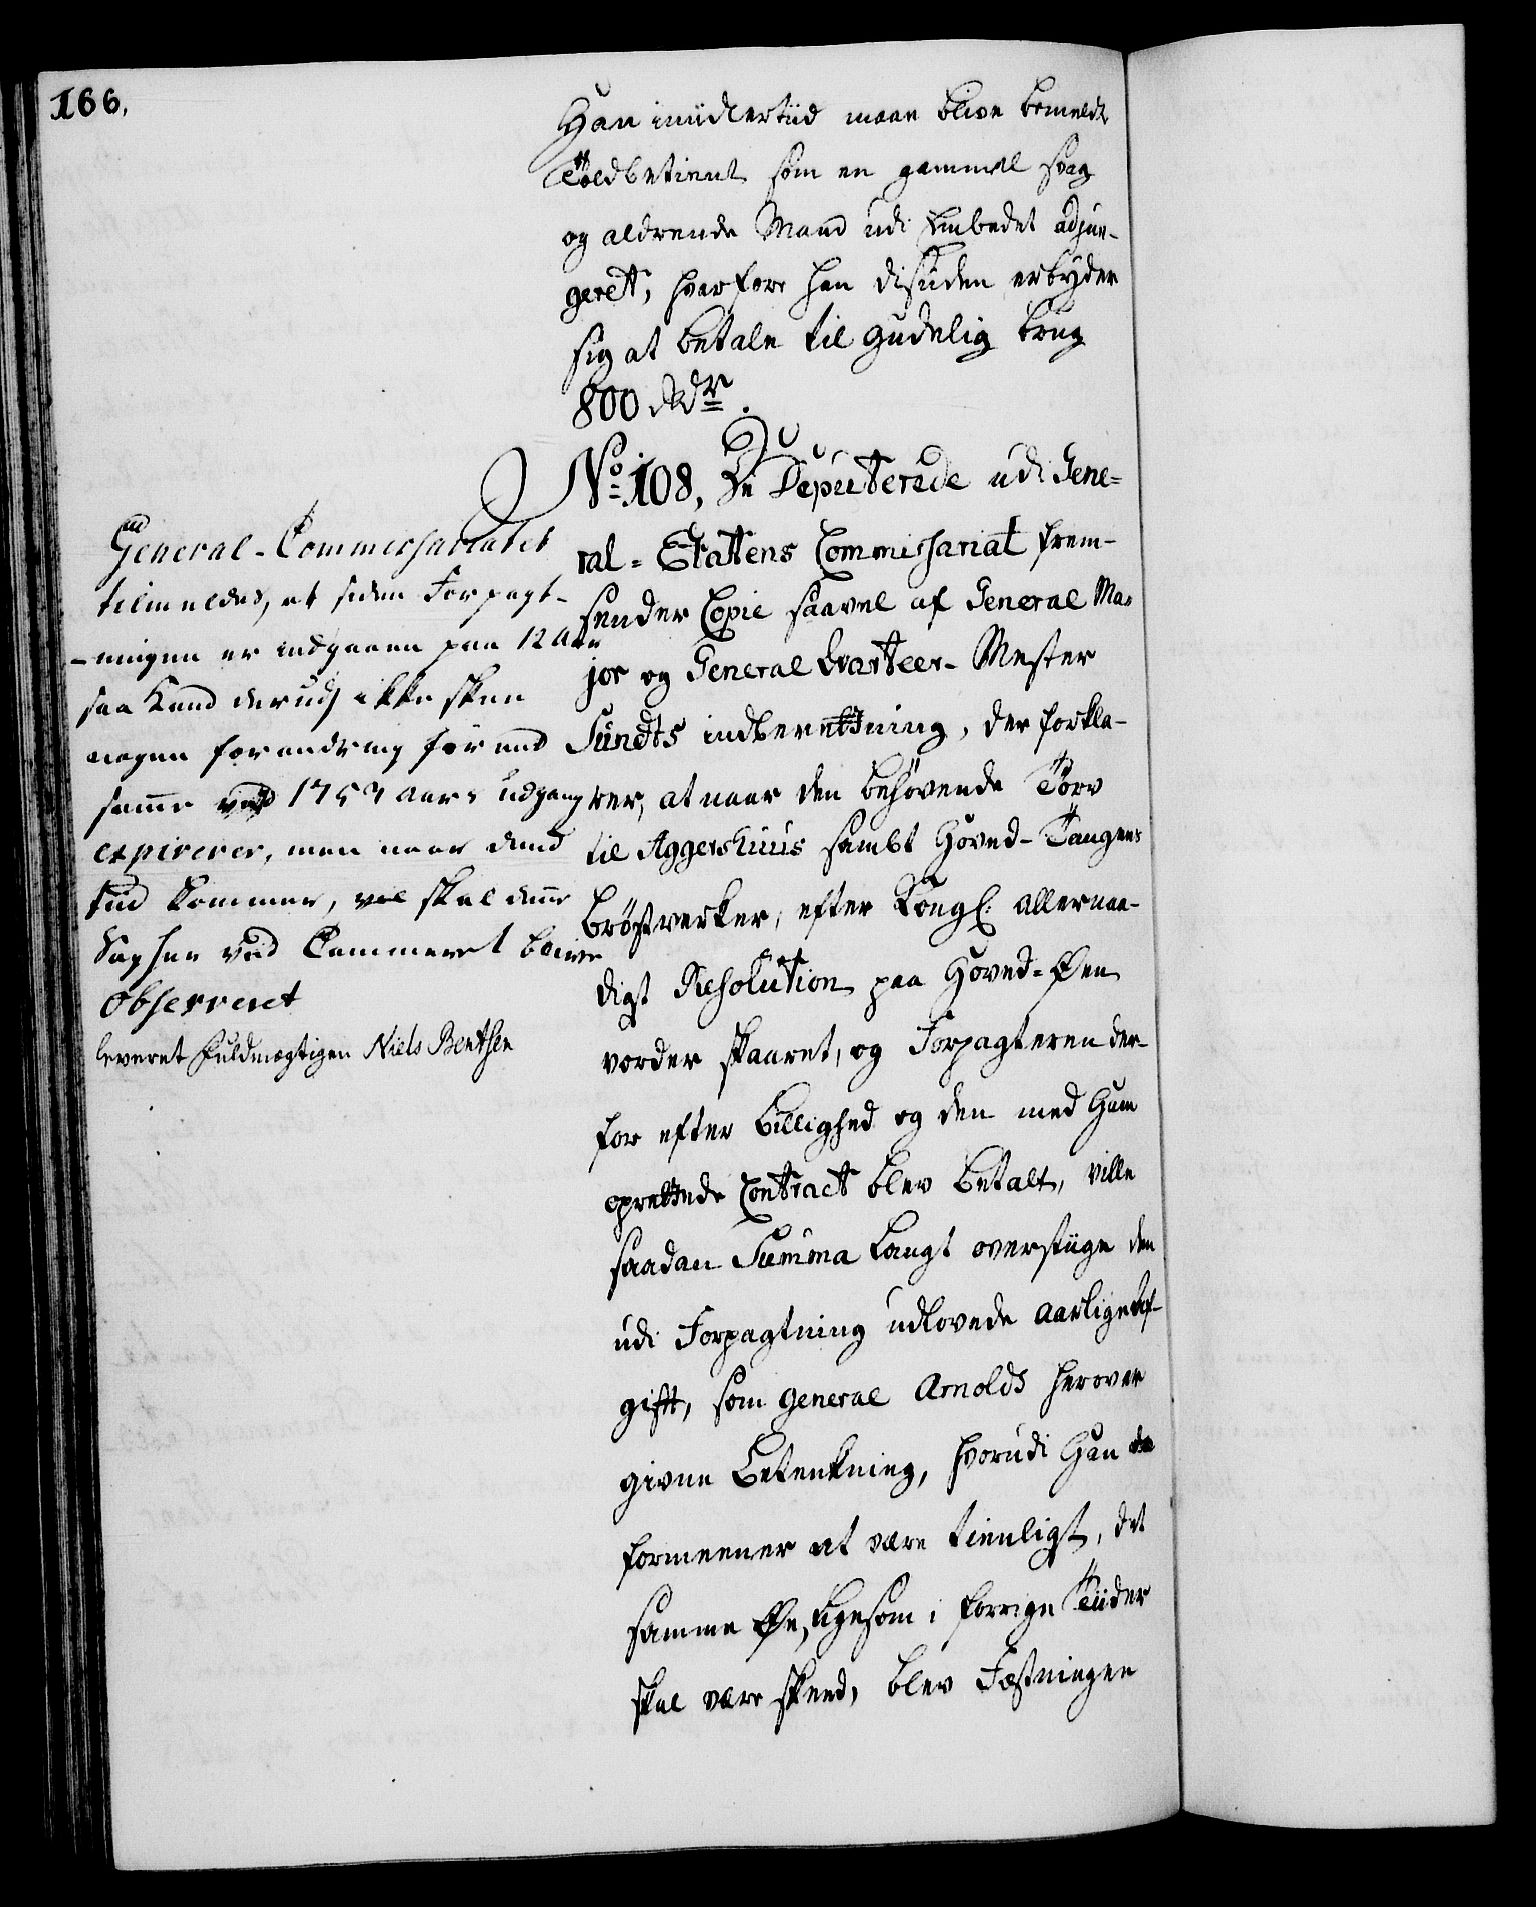 166.
Han imidlertiid maae blive bemeldt
Toldbetient som en gammel svag
og aldrende Mand udi Embedet adjun-
geret, hvorfore han desuden erbyder
sig at betale til gudelig brug
800 Rdr.
No. 108, De Deputerede udi Gene-
ral-Etattens Commissariat frem-
sender Copie saavel af General Ma-
jor og General Qvarteer-Mester
Sundts indberettning, der forkla-
rer, at naar den behøvende Törv
til Aggershuus sambt Hoved-Tangens
Bröstverker, efter Kongl: allernaa-
digst Resolution paa Hoved-Øen
vorder skaaret, og Forpagteren der-
for efter billighed og den med Ham
oprettede Contract blev betalt, ville
saadan Summa langt overstiige den
udi Forpagtning udlovede aarlige Af-
gift, som General Arnolds herover
givne Betenkning, hvorudi Han
formeener at være tienligt, at
samme Øe, ligesom i forrige Tiider
skal være skeed, blev Fæstningen
General-Commissariatet
tilmeldes, at siden Forpagt-
-ningen er indgaaen paa 12 Aar
saa kand derudj ikke skee
nogen forandring før end
samme ved 1757 aars udgang
expirerer, men naar dend
tiid kommer, skal denne
Sag her ved Cammeret blive
observeret
leveret Fuldmægtigen Niels Bentsen